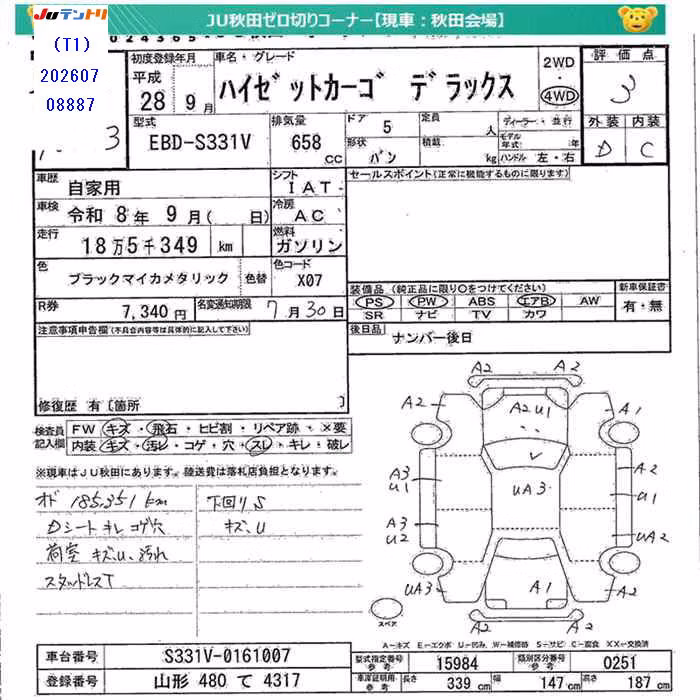 JUテントリ
JU秋田ゼロ切りコーナー【現車：秋田会場】
(T1)
202607
08887
初度登録年月
平成
28 9月
車名・グレード
ハイゼットカーゴ デラックス
2WD
・
4WD
評価点
3
型式
EBD-S331V
排気量
658 CC
ドア 5
形状 バン
定員 人
積載 kg
ディーラー・並行
モデル年式 年
ハンドル 左・右
外装 内装
D C
車歴 自家用
シフト IAT
セールスポイント(正常に機能するものに限ります)
車検 令和 8年 9月( 日)
冷房 AC
走行 18万5千349 km
燃料 ガソリン
色 ブラックマイカメタリック 色替
色コード X07
R券 7,340円
名変通知期限 7月30日
装備品 (純正品に限り○をつけてください)
PS PW ABS エアB AW
SR ナビ TV カワ
新車保証書
有・無
後日品 ナンバー後日
注意事項申告欄(不具合内容等は具体的に記入して下さい)
修復歴 有[箇所 ]
検査員記入欄
FW キズ・飛石・ヒビ割・リペア跡・×要
内装 キズ・汚レ・コゲ・穴・スレ・キレ・破レ
※現車はJU秋田にあります。陸送費は落札店負担となります。
オド 185,351km
Dシート キレ コゲ穴
荷室 キズ、U、汚れ
スタッドレスT
下回りS
キズ、U
A2
A2
A2
A2U1
A1
A3
U1
UA3
A2
U1
A3
U2
UA2
UA3
A1
A3
A2
UA2
スペア
A-キズ E-エクボ U-凹み W-補修跡 S-サビ C-腐食 XX-交換済
車台番号 S331V-0161007
登録番号 山形 480 て 4317
型式指定番号 参考 15984
類別区分番号 参考 0251
車庫証明用 参考 長さ 339 cm 幅 147 cm 高さ 187 cm